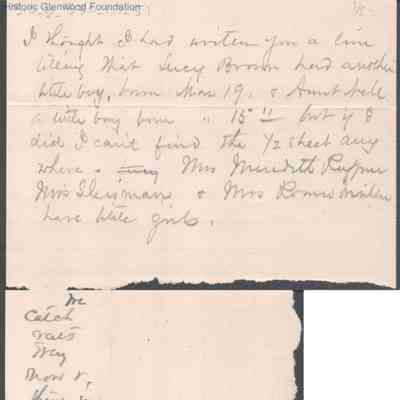 Historic Glenwood Foundation
I thought I had written you a line
telling that Lucy Brown had another
little boy, born Mar 19. & Aunt Nell
a little boy born " 15" but if I
did I can't find the ½ sheet any
where & Mrs Meredith Ruffner
Mrs & Mrs Romeo
have little girls.
We
Catch
rats